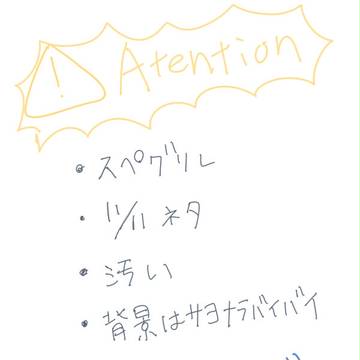 ! Atention
・スペグリル
・11/11ネタ
・汚い
・背景はサヨナラバイバイ